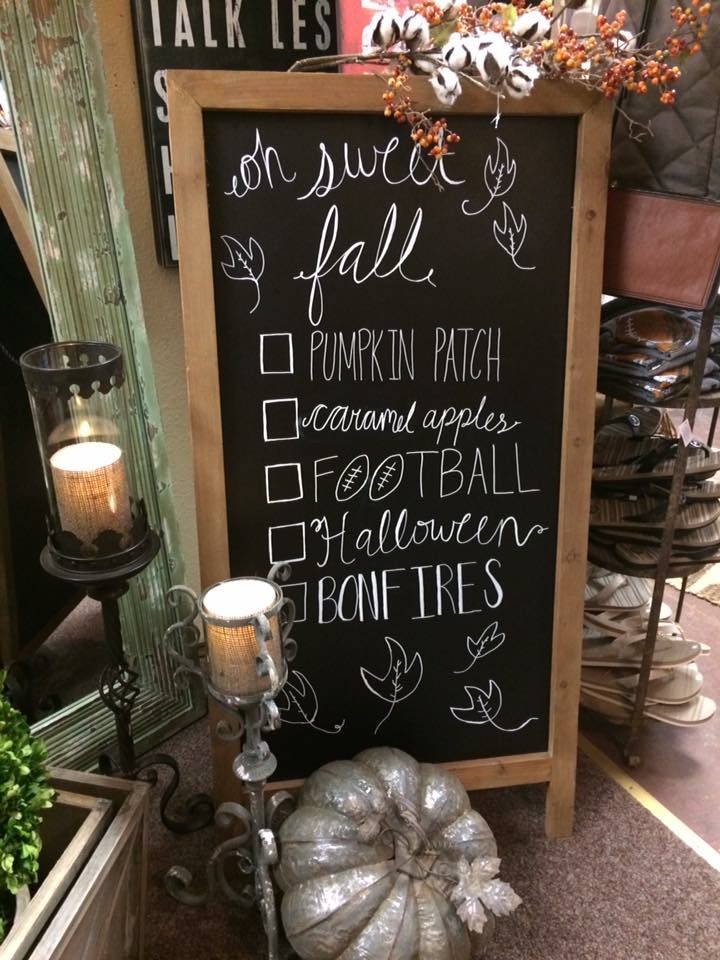 TALK LES
S
oh sweet
fall
PUMPKIN PATCH
caramel apples
FOOTBALL
Halloween
BONFIRES